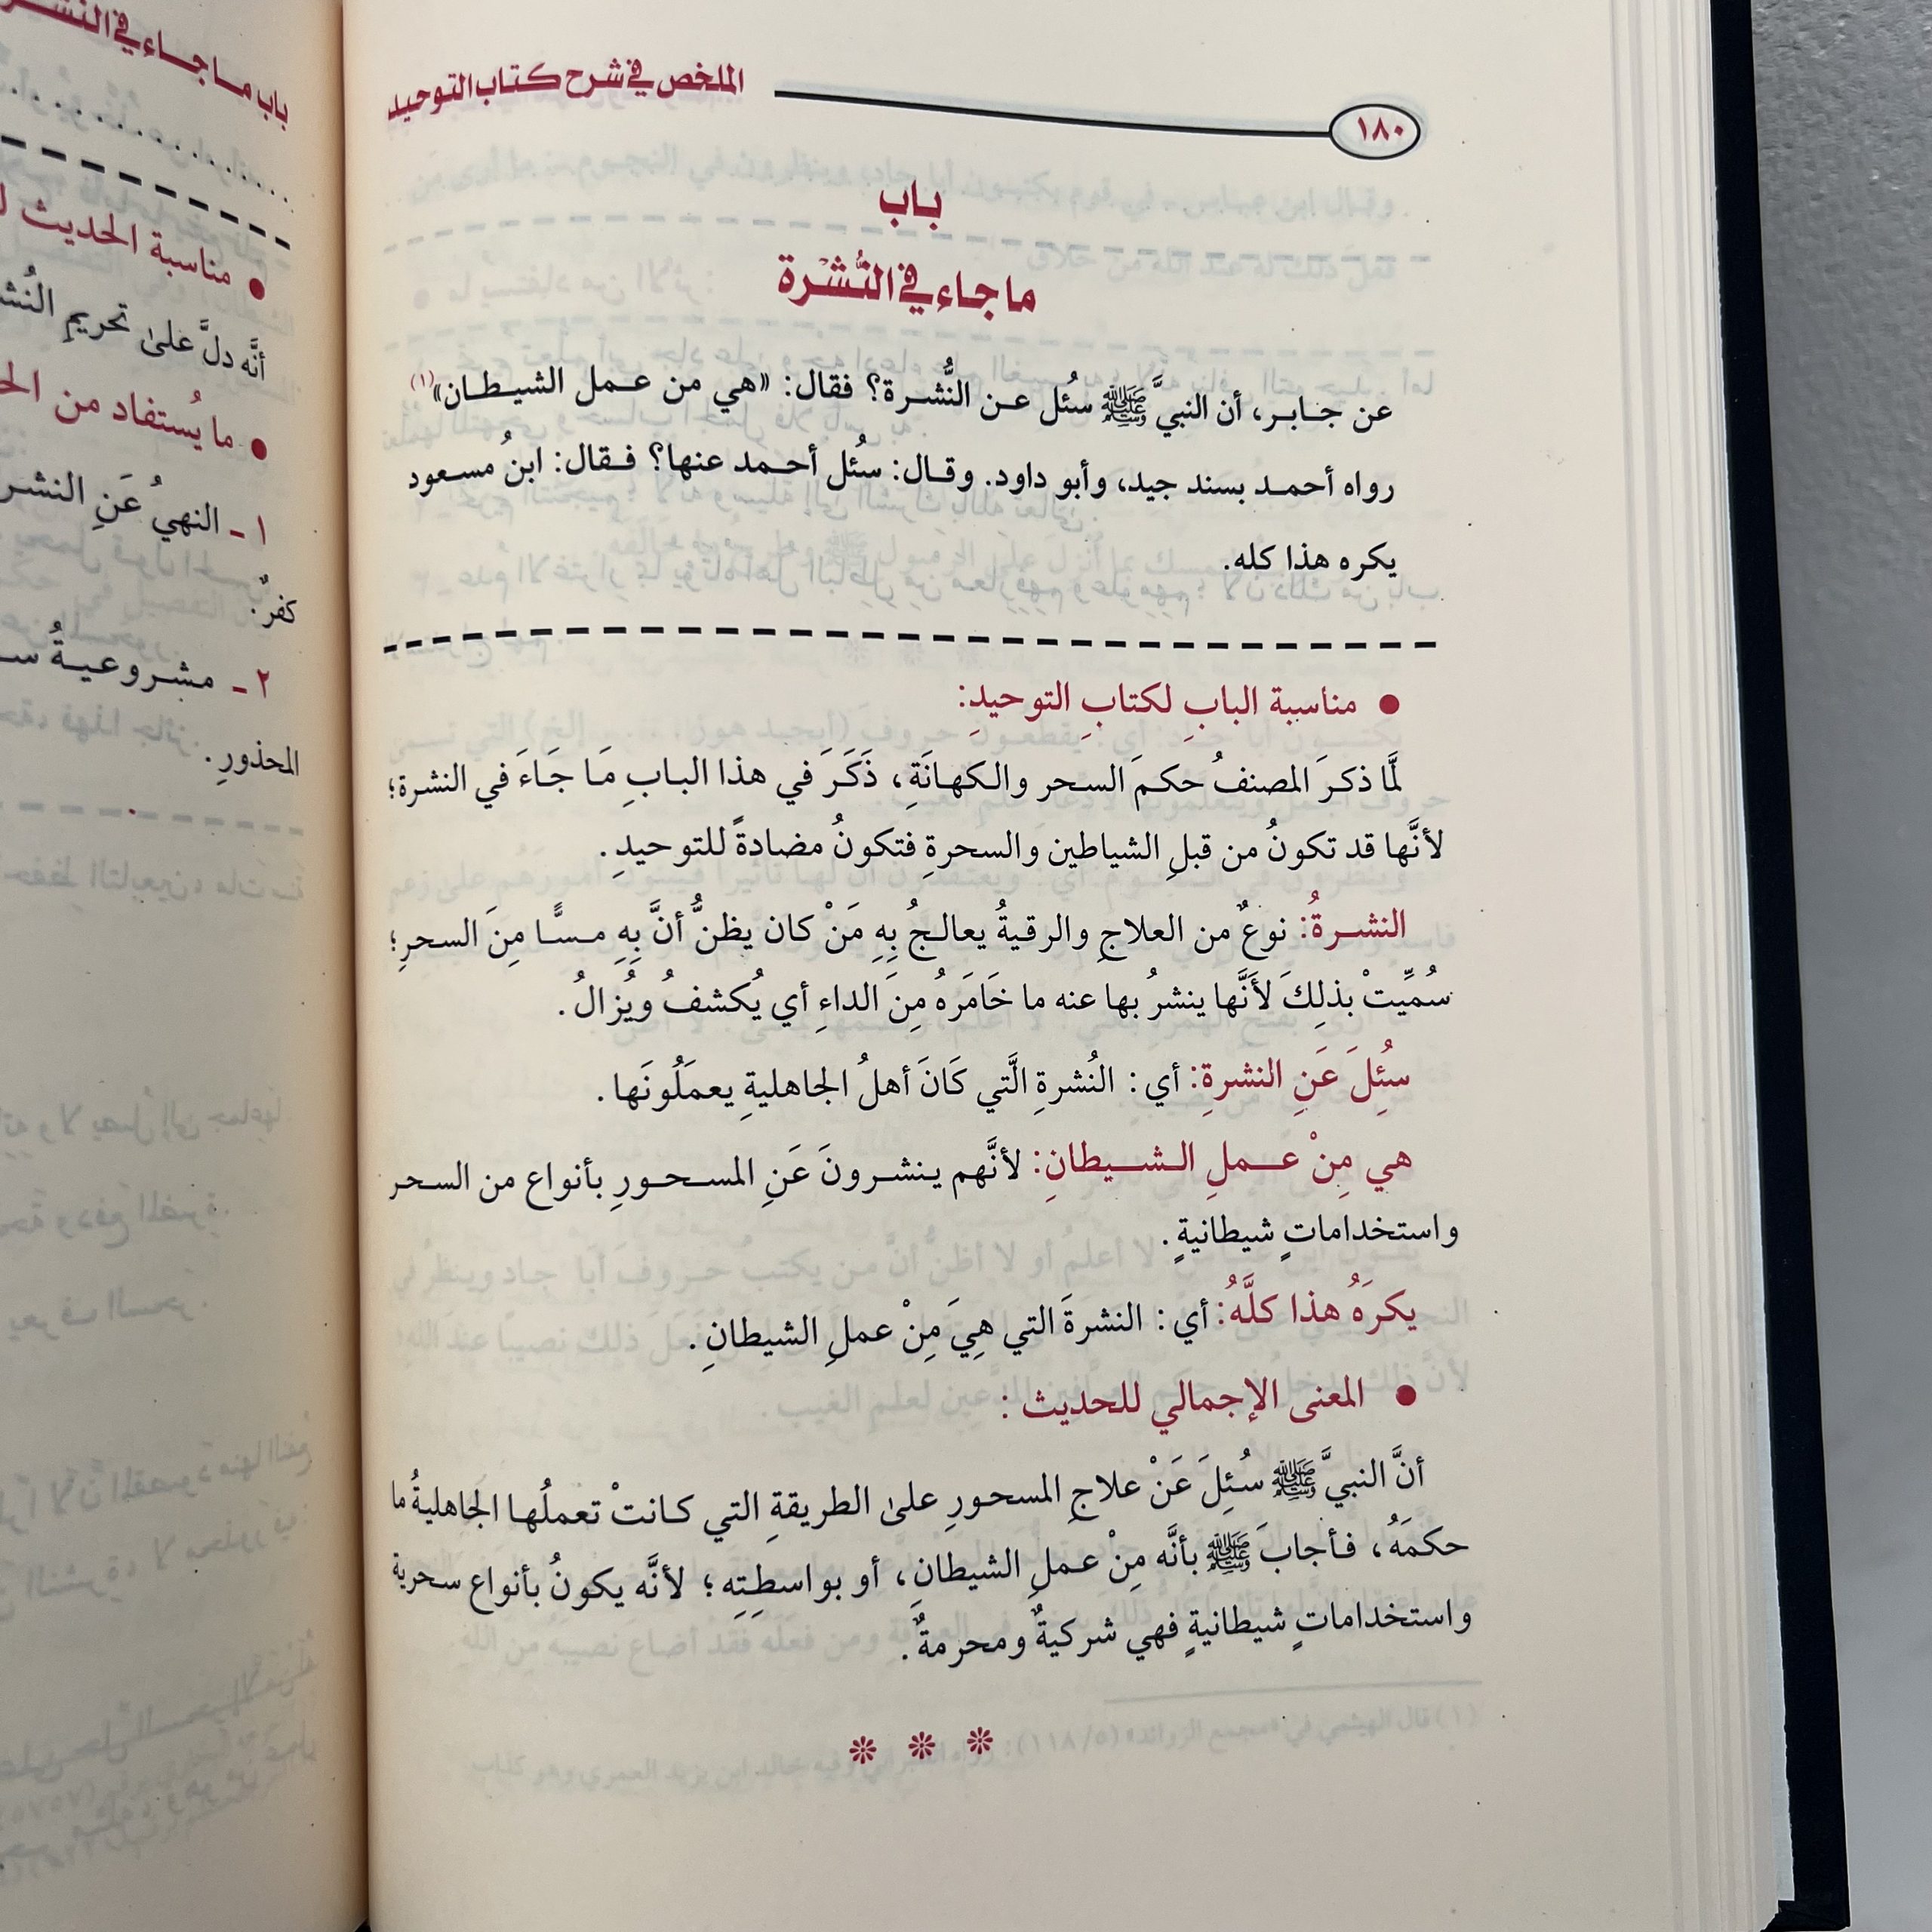 الملخص في شرح كتاب التوحيد
١٨٠
باب
ما جاء في النُّشْرة
عن جابر، أن النبيَّ ﷺ سئُل عن النُّشرة؟ فقال: «هي من عمل الشيطان»(١)
رواه أحمد بسند جيد، وأبو داود. وقال: سئُل أحمد عنها؟ فقال: ابنُ مسعود
يكره هذا كله.
● مناسبة البابِ لكتابِ التوحيدِ:
لَّما ذكرَ المصنفُ حكمَ السحر والكهانَةِ، ذَكَرَ في هذا البابِ مَا جَاءَ في النشرة؛
لأنَّها قد تكونُ من قبلِ الشياطين والسحرةِ فتكونُ مضادةً للتوحيدِ.
النشرةُ: نوعٌ من العلاجِ والرقيةُ يعالجُ بِهِ مَنْ كان يظنُّ أنَّ بِهِ مسًّا مِنَ السحرِ؛
سُمِّيتْ بذلِكَ لأَنَّها ينشرُ بها عنه ما خَامَرَهُ مِنَ الداءِ أي يُكشفُ ويُزالُ.
سئِلَ عَنِ النشرةِ: أي: النُشرةِ الَّتي كَانَ أهلُ الجاهليةِ يعمَلُونَها.
هي مِنْ عملِ الشيطانِ: لأنَّهم ينشرونَ عَنِ المسحورِ بأنواع من السحر
واستخداماتٍ شيطانيةٍ.
يكرَهُ هذا كلَّهُ: أي: النشرةَ التي هِيَ مِنْ عملِ الشيطانِ.
● المعنى الإجمالي للحديث:
أنَّ النبيَّ ﷺ سُئِلَ عَنْ علاجِ المسحورِ على الطريقةِ التي كانتْ تعملُها الجَاهليةُ ما
حكمَهُ، فأجابَ ﷺ بأنَّه مِنْ عملِ الشيطانِ، أو بواسطِتِه؛ لأنَّه يكونُ بأنواع سحرية
واستخداماتٍ شيطانيةٍ فهي شركيةٌ ومحرمةٌ.
باب ما جاء في النشر
● مناسبة الحديث
أنَّه دلَّ على تحريمِ
● ما يُستفاد من
١ - النهيُ عَنِ
كفرٌ.
٢ - مشروعيةُ
المحذورِ.